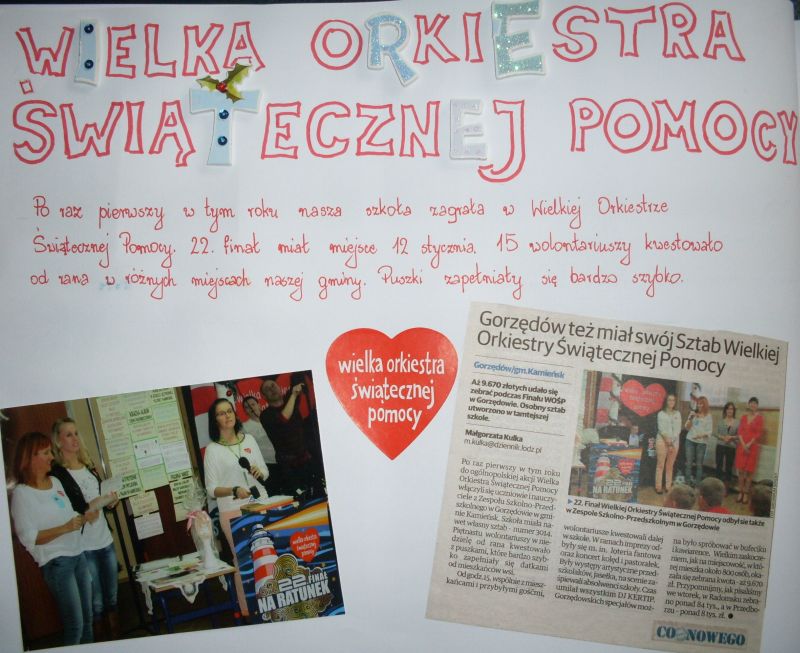 WIELKA ORKIESTRA
ŚWIĄTECZNEJ POMOCY
Po raz pierwszy w tym roku nasza szkoła zagrała w Wielkiej Orkiestrze
Świątecznej Pomocy. 22. finał miał miejsce 12 stycznia. 15 wolontariuszy kwestowało
od rana w różnych miejscach naszej gminy. Puszki zapełniały się bardzo szybko.
wielka orkiestra
świątecznej
pomocy
22 FINAŁ
NA RATUNEK
Gorzędów też miał swój Sztab Wielkiej
Orkiestry Świątecznej Pomocy
Gorzędów/gm.Kamieńsk
Aż 9.670 złotych udało się
zebrać podczas Finału WOŚP
w Gorzędowie. Osobny sztab
utworzono w tamtejszej
szkole.
Małgorzata Kulka
m.kulka@dziennik.lodz.pl
Po raz pierwszy w tym roku
do ogólnopolskiej akcji Wielka
Orkiestra Świątecznej Pomocy
włączyli się uczniowie i nauczyciele
z Zespołu Szkolno-Przedszkolnego
w Gorzędowie w gminie
Kamieńsk. Szkoła miała nawet
własny sztab - numer 3014.
Piętnastu wolontariuszy w niedzielę
od rana kwestowało
z puszkami, które bardzo szybko
zapełniały się datkami
od mieszkańców wsi.
Od godz.15, wspólnie z mieszkańcami
i przybyłymi gośćmi,
NA RATUNEK
22. Finał Wielkiej Orkiestry Świątecznej Pomocy odbył się także
w Zespole Szkolno-Przedszkolnym w Gorzędowie
wolontariusze kwestowali dalej
w szkole. W ramach imprezy odbyły
się m. in. loteria fantowa
oraz koncert kolęd i pastorałek.
Były występy artystyczne przedszkolaków,
jasełka, na scenie zaśpiewali
absolwenci szkoły. Czas
umilał wszystkim DJ KERTIP.
Gorzędowskich specjałów można
było spróbować w bufeciku
i kawiarence. Wielkim zaskoczeniem,
jak na miejscowość, w której
mieszka około 800 osób, okazała
się zebrana kwota - aż 9.670
zł. Przypomnijmy, jak pisaliśmy
we wtorek, w Radomsku zebrano
ponad 84 tys., a w Przedborzu
- ponad 8 tys. zł.
CO NOWEGO